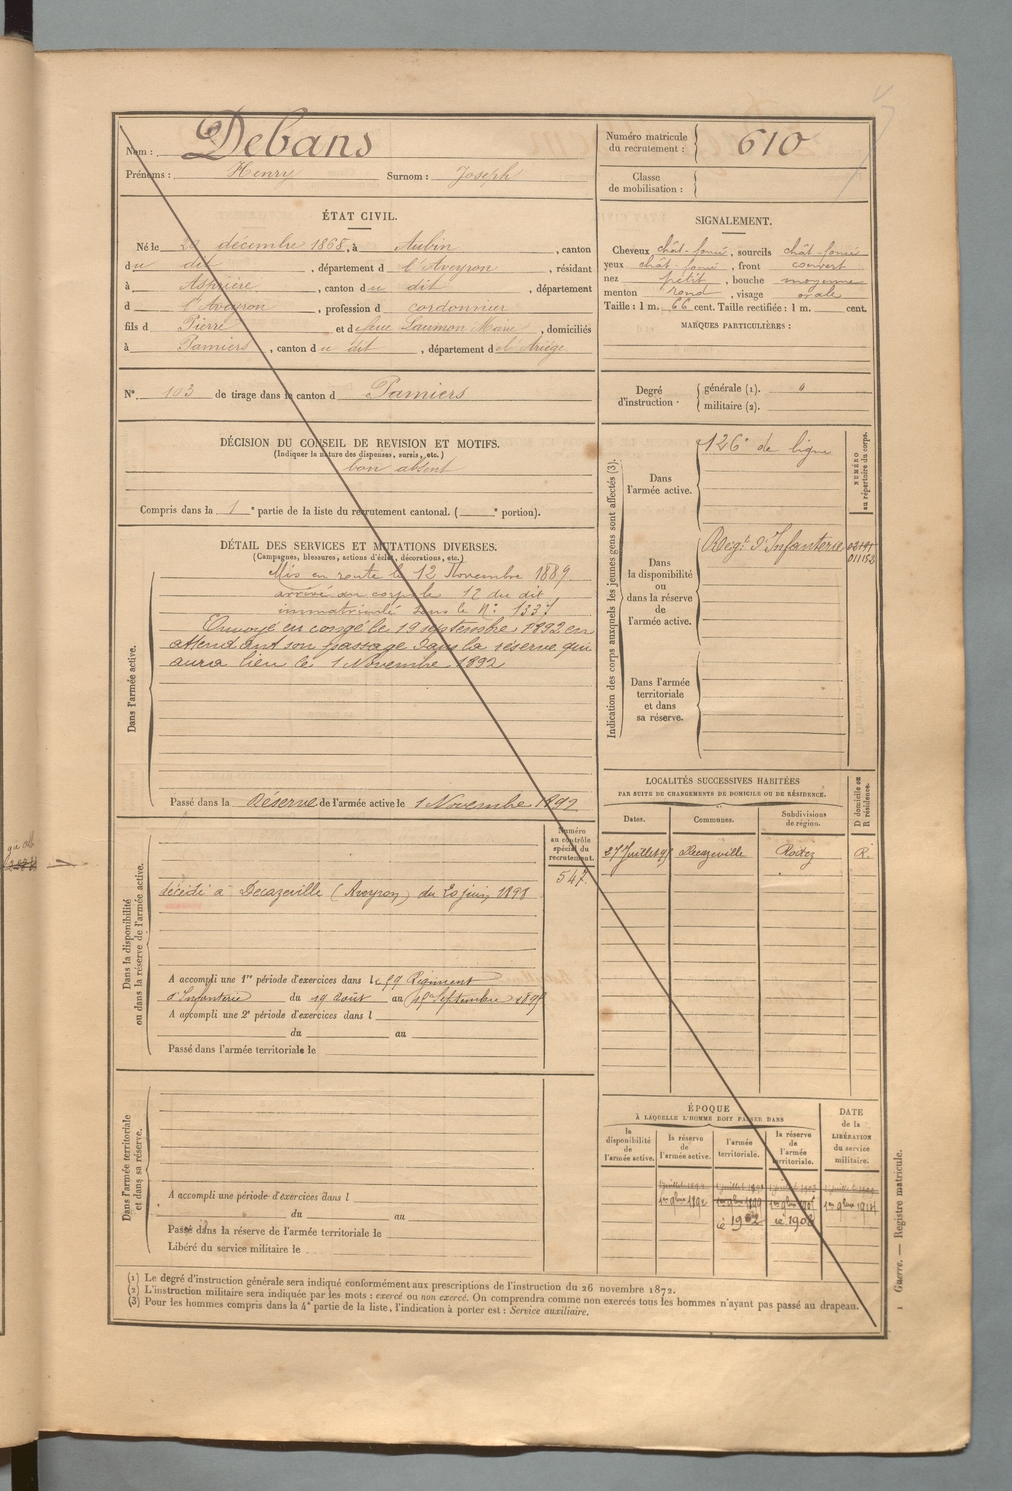 Nom : Debans
Prénoms : Henry Surnom : Joseph
Numéro matricule du recrutement : 610
Classe de mobilisation :
ÉTAT CIVIL.
Né le décembre 1868, à Aubin, canton
du dit, département d l'Aveyron, résidant
à Asprière, canton du dit, département
d l'Aveyron, profession d cordonnier
fils d Pierre et d feue Laumon Marie, domiciliés
à Pamiers, canton du dit, département d el'Ariège
N° 103 de tirage dans le canton d Pamiers
SIGNALEMENT.
Cheveux chât-foncé, sourcils chât-foncé
yeux chât foncé, front couvert
nez petit, bouche moyenne
menton rond, visage ovale
Taille : 1 m. 66 cent. Taille rectifiée : 1 m. cent.
MARQUES PARTICULIÈRES :
Degré d'instruction . générale (1).
militaire (2).
DÉCISION DU CONSEIL DE REVISION ET MOTIFS.
(Indiquer la nature des dispenses, sursis, etc.)
bon absent
Compris dans la 1e partie de la liste du recrutement cantonal. ( e portion).
DÉTAIL DES SERVICES ET MUTATIONS DIVERSES.
(Campagnes, blessures, actions d'éclat, décorations, etc.)
Dans l'armée active.
Mis en route le 12 Novembre 1889
arrivé au corps le 12 du dit
immatriculé sous le N° 1337
Envoyé en congé le 19 septembre 1892 en
attendant son passage dans la réserve qui
aura lieu le 1 Novembre 1892
Passé dans la Réserve de l'armée active le 1 Novembre 1892
Indication des corps auxquels les jeunes gens sont affectés (3).
NUMÉRO au répertoire du corps.
Dans l'armée active.
126e de ligne
Dans la disponibilité ou dans la réserve de l'armée active.
Regt d'Infanterie
Dans l'armée territoriale et dans sa réserve.
LOCALITÉS SUCCESSIVES HABITÉES
PAR SUITE DE CHANGEMENTS DE DOMICILE OU DE RÉSIDENCE.
Dates. Communes. Subdivisions de région. D domicile ou R résidence.
Decazeville Rodez R.
Dans la disponibilité ou dans la réserve de l'armée active.
Numéro au contrôle spécial du recrutement.
547
décédé à Decazeville (Aveyron) du 20 juin 1898
A accompli une 1re période d'exercices dans le 59 Régiment
d'Infanterie du 19 août au 15 Septembre
A accompli une 2e période d'exercices dans l
du au
Passé dans l'armée territoriale le
Dans l'armée territoriale et dans sa réserve.
A accompli une période d'exercices dans l
du au
Passé dans la réserve de l'armée territoriale le
Libéré du service militaire le
ÉPOQUE
À LAQUELLE L'HOMME DOIT PASSER DANS
la disponibilité de l'armée active. la réserve de l'armée active. l'armée territoriale. la réserve de l'armée territoriale.
DATE de la LIBÉRATION du service militaire.
1er 9bre 1892
(1) Le degré d'instruction générale sera indiqué conformément aux prescriptions de l'instruction du 26 novembre 1872.
(2) L'instruction militaire sera indiquée par les mots : exercé ou non exercé. On comprendra comme non exercés tous les hommes n'ayant pas passé au drapeau.
(3) Pour les hommes compris dans la 4e partie de la liste, l'indication à porter est : Service auxiliaire.
1 Guerre. — Registre matricule.